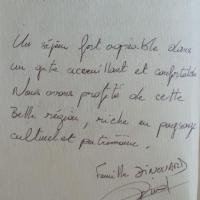 Un séjour fort agréable dans
un gite accueillant et confortable
Nous avons profité de cette
Belle région, riche en paysage
culturel et patrimoine.
Famille